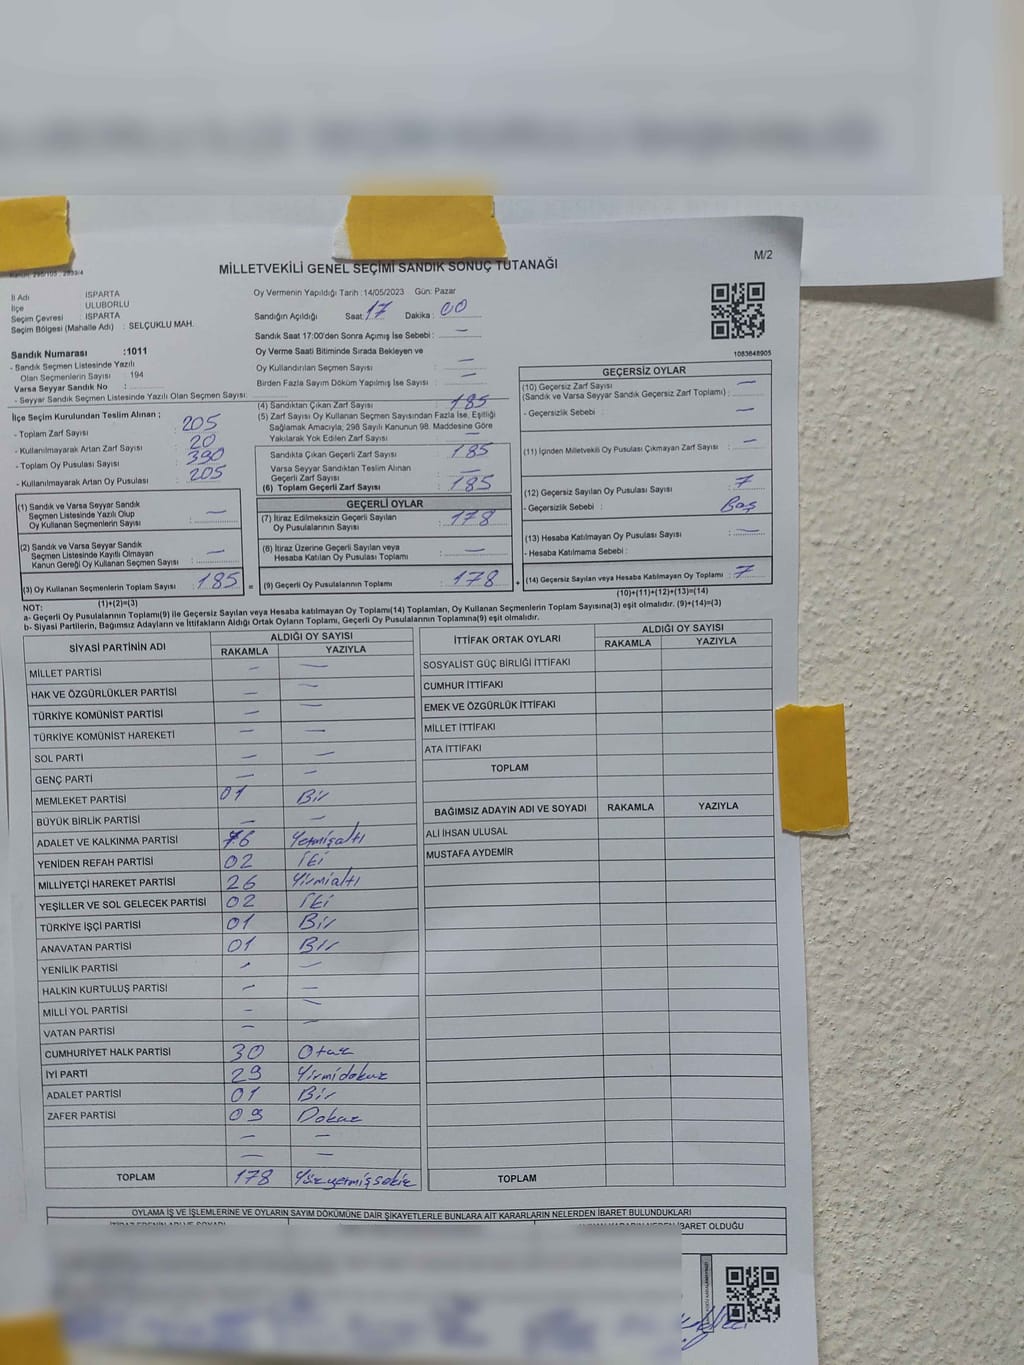 MİLLETVEKİLİ GENEL SEÇİMİ SANDIK SONUÇ TUTANAĞI
M/2
İl Adı ISPARTA
İlçe ULUBORLU
Seçim Çevresi : ISPARTA
Seçim Bölgesi (Mahalle Adı) : SELÇUKLU MAH.
Oy Vermenin Yapıldığı Tarih :14/05/2023 Gün: Pazar
Sandığın Açıldığı Saat: 17 Dakika: 00
Sandık Saat 17:00'den Sonra Açımış İse Sebebi : —
Oy Verme Saati Bitiminde Sırada Bekleyen ve
Oy Kullandırılan Seçmen Sayısı : —
Birden Fazla Sayım Döküm Yapılmış İse Sayısı : —
1083648905
Sandık Numarası :1011
- Sandık Seçmen Listesinde Yazılı
Olan Seçmenlerin Sayısı : 194
Varsa Seyyar Sandık No :
- Seyyar Sandık Seçmen Listesinde Yazılı Olan Seçmen Sayısı:
İlçe Seçim Kurulundan Teslim Alınan ;
- Toplam Zarf Sayısı : 205
- Kullanılmayarak Artan Zarf Sayısı : 20
- Toplam Oy Pusulası Sayısı : 390
- Kullanılmayarak Artan Oy Pusulası : 205
(1) Sandık ve Varsa Seyyar Sandık
Seçmen Listesinde Yazılı Olup
Oy Kullanan Seçmenlerin Sayısı : —
(2) Sandık ve Varsa Seyyar Sandık
Seçmen Listesinde Kayıtlı Olmayan
Kanun Gereği Oy Kullanan Seçmen Sayısı : —
(3) Oy Kullanan Seçmenlerin Toplam Sayısı : 185
(1)+(2)=(3)
(4) Sandıktan Çıkan Zarf Sayısı : 185
(5) Zarf Sayısı Oy Kullanan Seçmen Sayısından Fazla İse, Eşitliği
Sağlamak Amacıyla; 298 Sayılı Kanunun 98. Maddesine Göre
Yakılarak Yok Edilen Zarf Sayısı : —
Sandıkta Çıkan Geçerli Zarf Sayısı : 185
Varsa Seyyar Sandıktan Teslim Alınan
Geçerli Zarf Sayısı : —
(6) Toplam Geçerli Zarf Sayısı : 185
GEÇERLİ OYLAR
(7) İtiraz Edilmeksizin Geçerli Sayılan
Oy Pusulalarının Sayısı : 178
(8) İtiraz Üzerine Geçerli Sayılan veya
Hesaba Katılan Oy Pusulası Toplamı : —
= (9) Geçerli Oy Pusulalarının Toplamı : 178
GEÇERSİZ OYLAR
(10) Geçersiz Zarf Sayısı
(Sandık ve Varsa Seyyar Sandık Geçersiz Zarf Toplamı) : —
- Geçersizlik Sebebi : —
(11) İçinden Milletvekili Oy Pusulası Çıkmayan Zarf Sayısı : —
(12) Geçersiz Sayılan Oy Pusulası Sayısı : 7
- Geçersizlik Sebebi : Boş
(13) Hesaba Katılmayan Oy Pusulası Sayısı : —
- Hesaba Katılmama Sebebi :
+ (14) Geçersiz Sayılan veya Hesaba Katılmayan Oy Toplamı : 7
(10)+(11)+(12)+(13)=(14)
NOT:
a- Geçerli Oy Pusulalarının Toplamı(9) ile Geçersiz Sayılan veya Hesaba katılmayan Oy Toplamı(14) Toplamları, Oy Kullanan Seçmenlerin Toplam Sayısına(3) eşit olmalıdır. (9)+(14)=(3)
b- Siyasi Partilerin, Bağımsız Adayların ve İttifakların Aldığı Ortak Oyların Toplamı, Geçerli Oy Pusulalarının Toplamına(9) eşit olmalıdır.
SİYASİ PARTİNİN ADI ALDIĞI OY SAYISI
RAKAMLA YAZIYLA
MİLLET PARTİSİ — —
HAK VE ÖZGÜRLÜKLER PARTİSİ — —
TÜRKİYE KOMÜNİST PARTİSİ — —
TÜRKİYE KOMÜNİST HAREKETİ — —
SOL PARTİ — —
GENÇ PARTİ — —
MEMLEKET PARTİSİ 01 Bir
BÜYÜK BİRLİK PARTİSİ — —
ADALET VE KALKINMA PARTİSİ 76 Yetmişaltı
YENİDEN REFAH PARTİSİ 02 İki
MİLLİYETÇİ HAREKET PARTİSİ 26 Yirmialtı
YEŞİLLER VE SOL GELECEK PARTİSİ 02 İki
TÜRKİYE İŞÇİ PARTİSİ 01 Bir
ANAVATAN PARTİSİ 01 Bir
YENİLİK PARTİSİ — —
HALKIN KURTULUŞ PARTİSİ — —
MİLLİ YOL PARTİSİ — —
VATAN PARTİSİ — —
CUMHURİYET HALK PARTİSİ 30 Otuz
İYİ PARTİ 29 Yirmidokuz
ADALET PARTİSİ 01 Bir
ZAFER PARTİSİ 09 Dokuz
— —
— —
TOPLAM 178 Yüzyetmişsekiz
İTTİFAK ORTAK OYLARI ALDIĞI OY SAYISI
RAKAMLA YAZIYLA
SOSYALİST GÜÇ BİRLİĞİ İTTİFAKI
CUMHUR İTTİFAKI
EMEK VE ÖZGÜRLÜK İTTİFAKI
MİLLET İTTİFAKI
ATA İTTİFAKI
TOPLAM
BAĞIMSIZ ADAYIN ADI VE SOYADI RAKAMLA YAZIYLA
ALİ İHSAN ULUSAL
MUSTAFA AYDEMİR
TOPLAM
OYLAMA İŞ VE İŞLEMLERİNE VE OYLARIN SAYIM DÖKÜMÜNE DAİR ŞİKAYETLERLE BUNLARA AİT KARARLARIN NELERDEN İBARET BULUNDUKLARI
İBARET OLDUĞU